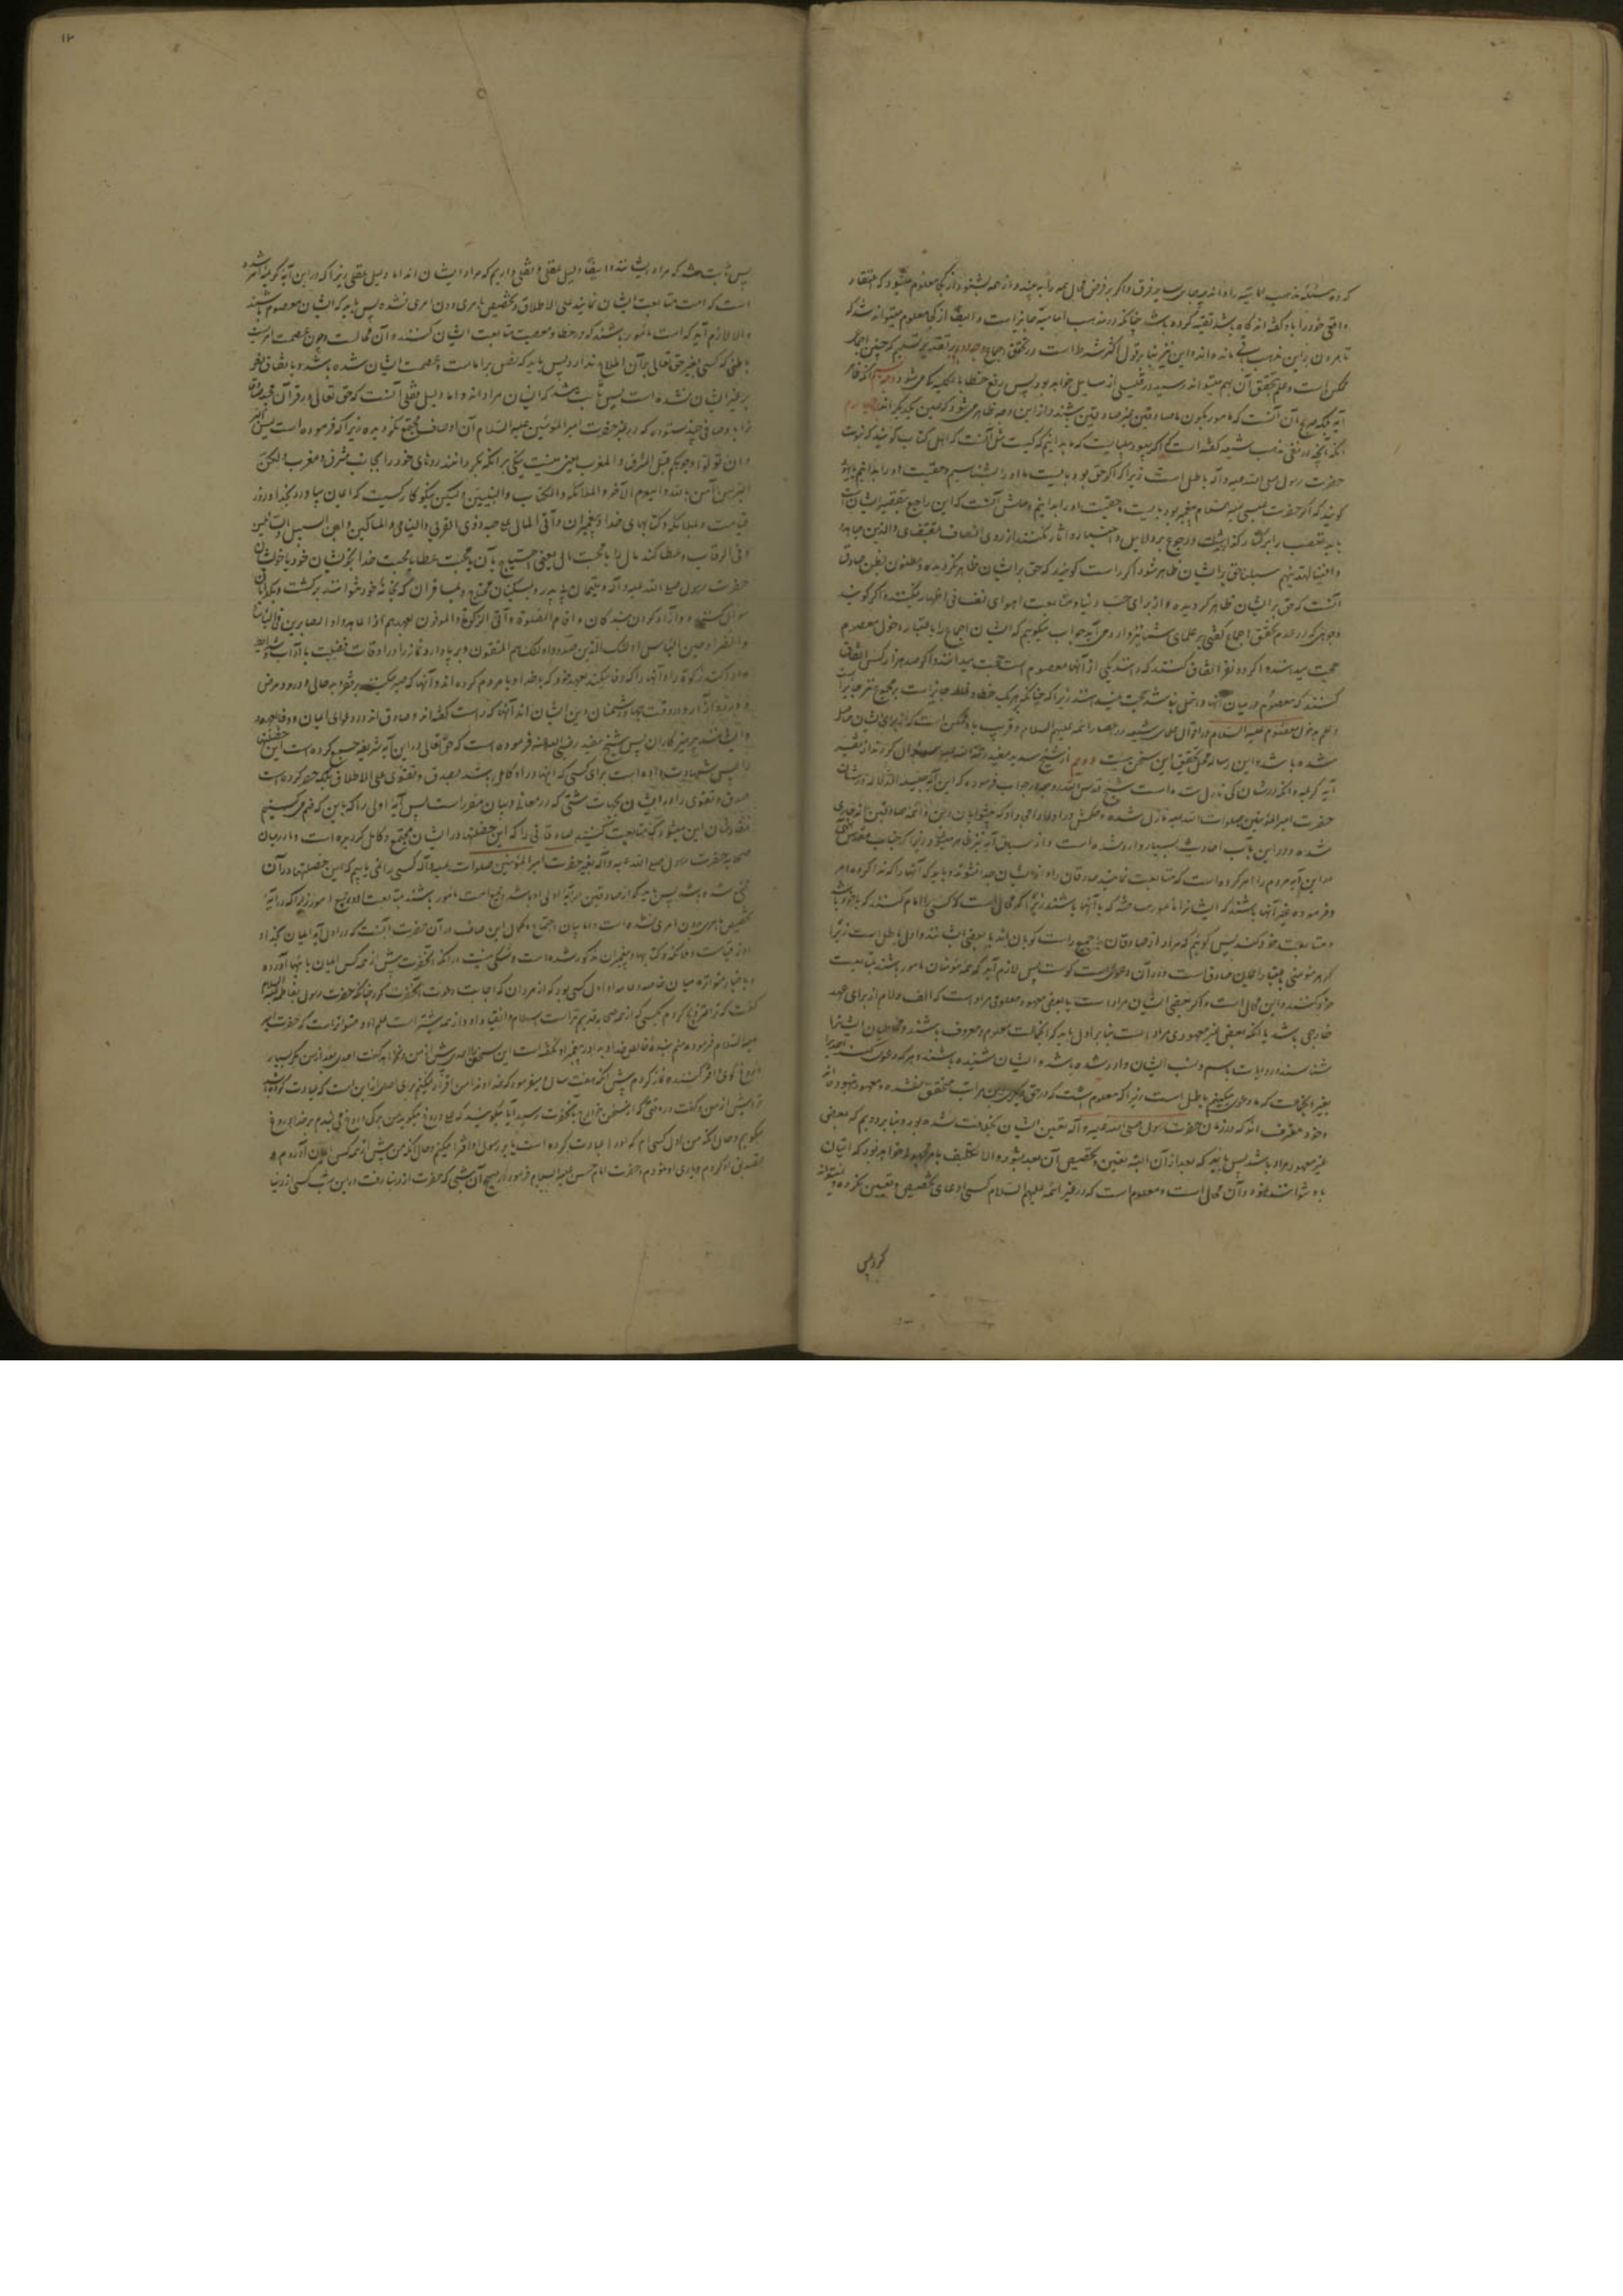 که
واقعی خود را باو گفته اند گاه باشد تقیه کرده باشد چنانکه در مذهب امامیه جایز است و ایضا از کجا معلوم میتواند شد که
تا مردن بر این مذهب باقی مانده اند و این نیز بنا بر قول اکثر شرط است در تحقق اجماع
ممکن است و علم بتحقق آن بهم میتواند رسید در قلیلی از مسایل خواهد بود پس رفع خطا بالکلیه کجا می شود
آیه
آنکه آنچه در نفی مذهب شیعه گفته است که
حضرت رسول صلی الله علیه و آله باطل است زیرا که اگر حق بود بایست ما او را بشناسیم و حقیت او را بدانیم
گویند که اگر حضرت عیسی علیه السلام پیغمبر بود بایست ما حقیت او را بدانیم و حلش آنست که این راجع بتقصیر ایشان است
باید تعصب را بر کنار گذاشت و رجوع بدلایل و اخبار و آثار نکنند از روی انصاف بمقتضای والذین جاهدوا
فینا لنهدینهم سبلنا حق بر ایشان ظاهر شود اگر راست گویند که حق بر ایشان ظاهر نگردیده و مظنون بظن صادق
آنست که حق بر ایشان ظاهر گردیده و از برای حب دنیا و متابعت اهوای نفسانی اظهار نمیکنند و اگر گویند
وجوهی که در عدم تحقق اجماع گفتی بر علمای شما نیز وارد می آید جواب میگوییم که ایشان اجماع را باعتبار دخول معصوم
حجت میدانند و اگر دو نفر اتفاق کنند که دانند یکی از آنها معصوم است حجت میدانند و اگر صد هزار کس اتفاق
کنند که معصوم در میان آنها داخل نباشد حجت نمیدانند زیرا که چنانکه بر هر یک خطا و غلط جایز است بر مجموع نیز جایز است
و علم بدخول معصوم علیه السلام در اقوال علمای شیعه در اعصار ائمه علیهم السلام و قریب بآن ممکن است که از برای ایشان حاصل
شده باشد و این رساله محل تحقیق این سخن نیست دویم از شیخ سدید مفید رحمة الله علیه سوال کردند از تفسیر
آیه کریمه و آنکه در شان کی نازل شده است شیخ قدس الله روحه در جواب فرموده که این آیه
حضرت امیر المؤمنین صلوات الله علیه نازل شده و حکمش در اولاد امجاد او که پیشوایان دین و ائمه صادقین اند جاری
شده و در این باب احادیث بسیار وارد شده است و از سیاق آیه نیز ظاهر میشود زیرا که جناب مقدس الهی
در این آیه مردم را امر کرده است که متابعت نمایند صادقان را و از ایشان جدا نشوند و باید که آنها را که ندا کرده و امر
فرموده غیر آنها باشند که ایشانرا مأمور ساخته که با آنها باشند زیرا که محال است که کسی را امر کنند که با خود باش
و متابعت خود کند پس گوییم که مراد از صادقان یا جمیع راست گویان اند یا بعضی ایشانند و اول باطل است زیرا
که هر مؤمنی باعتبار ایمان صادق است و در آن دعوی راست گوست پس لازم آید که همه مؤمنان مأمور باشند بمتابعت
خود کنند و این محال است و اگر بعضی ایشان مراد است یا بعضی معهود و معلوم مراد است که الف و لام از برای عهد
خارجی باشد یا آنکه بعضی غیر معهودی مراد است بنا بر اول باید که آنجماعت معلوم و معروف باشند و مخاطبان ایشانرا
شناسند و روایات باسم و نسب ایشان وارد شده باشد و ایشان شنیده باشند و هر که دعوی کند
بغیر آنجماعت که ما دعوی میکنیم باطل است زیرا که معلوم است که در حق دیگری این مراتب محقق نشده و معهود نبوده اند
و خود معترف اند که در زمان حضرت رسول صلی الله علیه و آله تعیین ایشان بخلافت نشده بود و بنا بر دویم که بعضی
غیر معهود مراد باشد پس باید که بعد از آن البته تعیین و تخصیص آن بعد بشود و الا تکلیف بامر مجهول خواهد بود که اتیان
باو نتوانند نمود و آن محال است و معلوم است که در غیر ائمه علیهم السلام کسی ادعای تخصیص و تعیین نکرده و نمیتواند
کرد پس
۱۲
پس ثابت شد که مراد ایشانند و ایضا دلیل عقلی و نقلی داریم که مراد ایشان اند اما دلیل عقلی زیرا که در این آیه کریمه امر شده
است که امت متابعت ایشان نمایند علی الاطلاق و تخصیص بامری دون امری نشده پس باید که ایشان معصوم باشند
و الا لازم آید که امت مأمور باشند که در خطا و معصیت متابعت ایشان کنند و آن محالست و چون عصمت امریست
باطنی که کسی بغیر حق تعالی بر آن اطلاع ندارد پس باید که نص بر امامت و عصمت ایشان شده باشد و باتفاق نص
بر غیر ایشان نشده است پس ثابت شد که ایشان مراد اند و اما دلیل نقلی آنست که حق تعالی در قرآن مجید صادقان
را باوصافی چند ستوده که در غیر حضرت امیر المؤمنین علیه السلام آن اوصاف مجتمع نگردیده زیرا که فرموده است لیس البر
ان تولوا وجوهکم قبل المشرق و المغرب یعنی نیست نیکی بر آنکه بگردانند روهای خود را بجانب مشرق و مغرب و لکن
البر من آمن بالله و الیوم الآخر و الملائکة و الکتاب و النبیین و لیکن نیکو کار کسیست که ایمان بیاورد بخدا و روز
قیامت و بملائکه و کتابهای خدا و پیغمبران و آتی المال علی حبه ذوی القربی و الیتامی و المساکین و ابن السبیل و السائلین
و فی الرقاب و عطا کند مال را با محبت مال یعنی احتیاج بآن یا محبت عطا یا محبت خدا بخویشان خود یا خویشان
حضرت رسول صلی الله علیه و آله و یتیمان بی پدر و مسکینان محتاج و مسافران که بخانه خود نتوانند برگشت و
سوال کننده و در آزاد کردن بندگان و اقام الصلوة و آتی الزکوة و الموفون بعهدهم اذا عاهدوا و الصابرین فی البأساء
و الضراء و حین البأس اولئک الذین صدقوا و اولئک هم المتقون و بر پا دارد نماز را در اوقات فضیلت با آداب و شرایط
و ادا کند زکوة را و آنها را که وفا میکنند بعهد خود که با خدا و یا مردم کرده اند و آنها که صبر میکنند
و در وقت جهاد با دشمنان دین ایشان اند آنها که راست گفته اند و صادق اند در دعوای ایمان و وفا بعهد
و ایشانند پرهیزکاران پس شیخ مفید رضی الله عنه فرموده است که حق تعالی در این آیه شریفه جمع کرده است این خصلتها
را پس شهادت داده است برای کسی که اینها در او کامل باشند بصدق و تقوی علی الاطلاق بلکه حصر کرده است
صدق و تقوی را در ایشان
این میشود که متابعت کنید صادقانی را که این خصلتها در ایشان مجتمع و کامل گردیده است و ما در میان
صحابه حضرت رسول صلی الله علیه و آله بغیر حضرت امیر المؤمنین صلوات الله علیه و آله کسی را نمی یابیم که این خصلتها در آن
جمع شده باشد پس باید که از صادقین در آیه اولی او باشد و جمیع امت مأمور باشند بمتابعت او در جمیع امور زیرا که در آیه
تخصیص بامری دون امری نشده است و اما بیان اجتماع و کمول این اوصاف در آن حضرت آنست که در اول آیه ایمان بخدا و
روز قیامت و ملائکه و کتابها و پیغمبران مذکور شده است و شکی نیست در آنکه آنحضرت پیش از همه کس ایمان باینها آورده
و باخبار متواتره میان خاصه و عامه او اول کسی بود که از مردان که اجابت دعوت آنحضرت کرد چنانکه حضرت رسول بفاطمه علیها السلام
گفت که ترا تزویج کردم بکسی که از همه صحابه قدیم تر است اسلام و انقیاد او و از همه بیشتر است علم او و متواتر است که حضرت امیر
علیه السلام فرمود منم بنده خدا و برادر پیغمبر او نگفته است این سخن را احدی پیش از من و نخواهد گفت احدی بعد از من مگر بسیار
دروغ گوی افترا کننده نماز کردم پیش از آنکه هفت سال
پیش از من و گفت در وقتی که این سخن خوارج بآنحضرت رسید آیا میگویند که علی دروغ میگوید پس بر که دروغ می بندم بر خدا دروغ
میگویم و حال آنکه من اول کسی ام که او را عبادت کرده است یا بر رسول او افترا میکنم و حال آنکه من پیش از همه کس ایمان آوردم و
تصدیق او کردم و یاری او نمودم و حضرت امام حسن علیه السلام فرمود در صبح آن شبی که حضرت از دنیا رفت در این شب کسی از دنیا